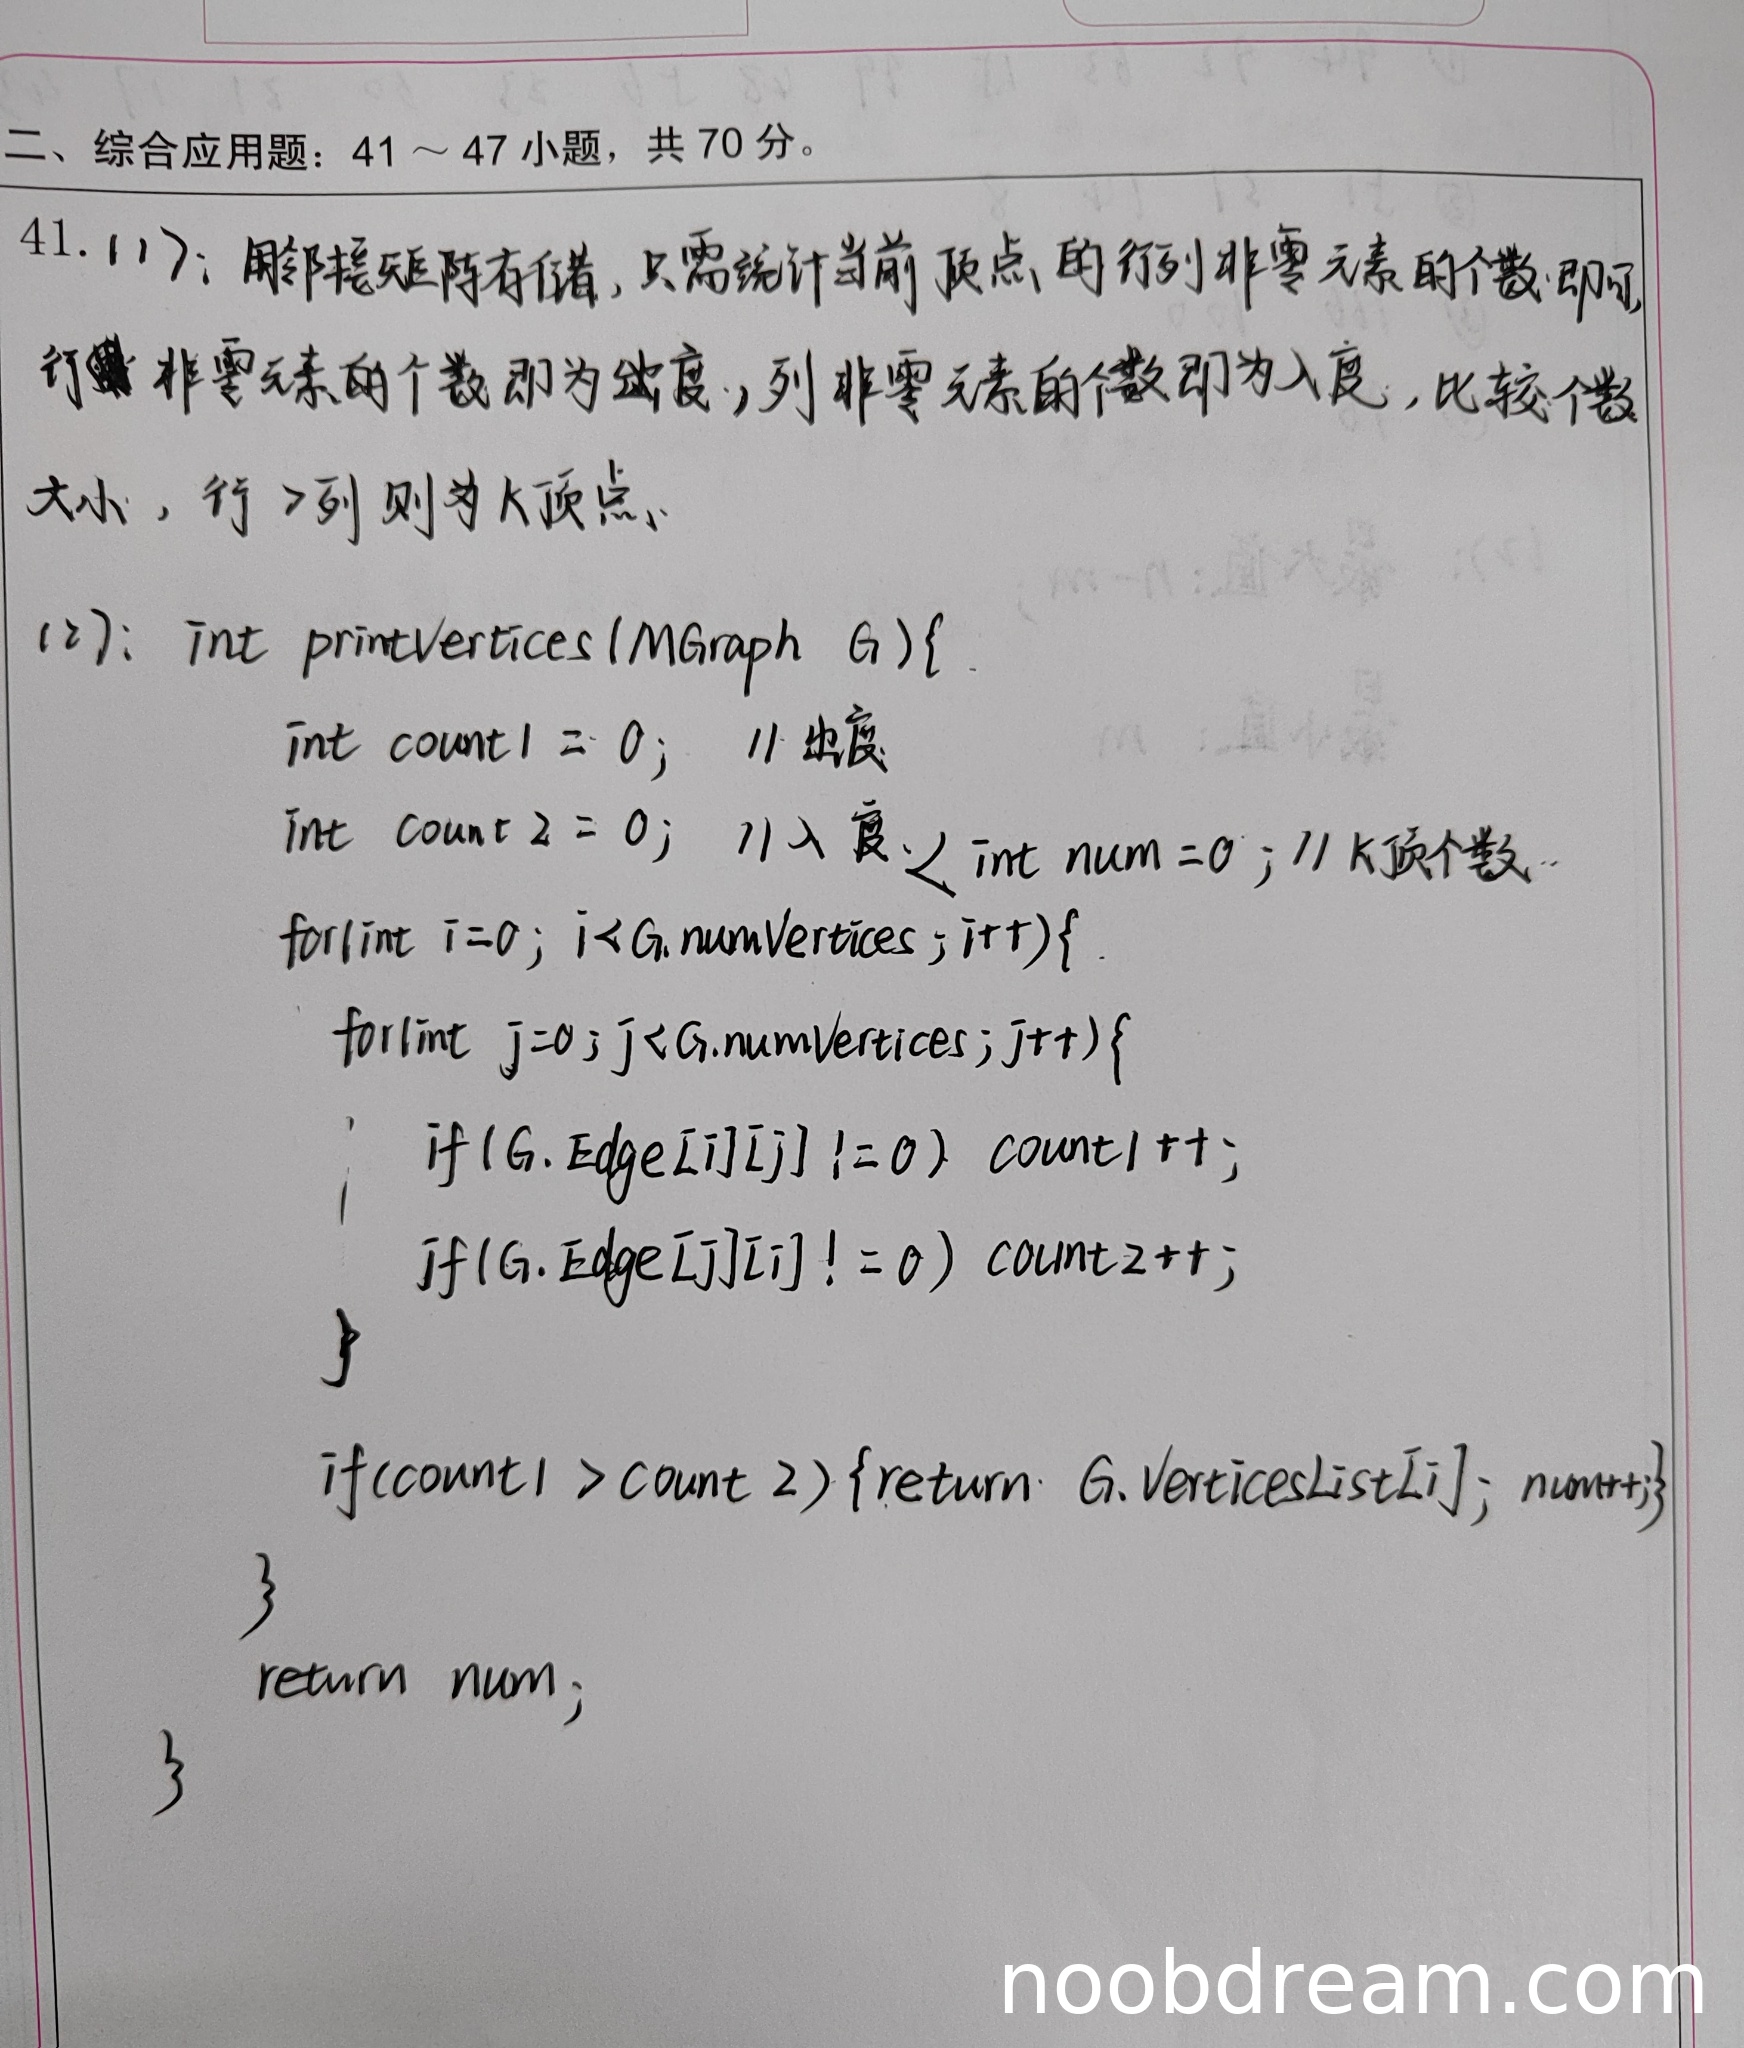 二、综合应用题：41～47小题，共70分。
41.(1)：用邻接矩阵存储，只需统计当前顶点的行列非零元素的个数即可，
行 非零元素的个数即为出度，列非零元素的个数即为入度，比较个数
大小，行>列则为K顶点、
(2)：int printVertices(MGraph G){
int count1 = 0; //出度
int count2 = 0; //入度 int num=0; //K顶个数
for(int i=0; i<G.numVertices; i++){
for(int j=0; j<G.numVertices; j++){
if(G.Edge[i][j]!=0) count1++;
if(G.Edge[j][i]!=0) count2++;
}
if(count1 > count2){return G.VerticesList[i]; num++;}
}
return num;
}
noobdream.com